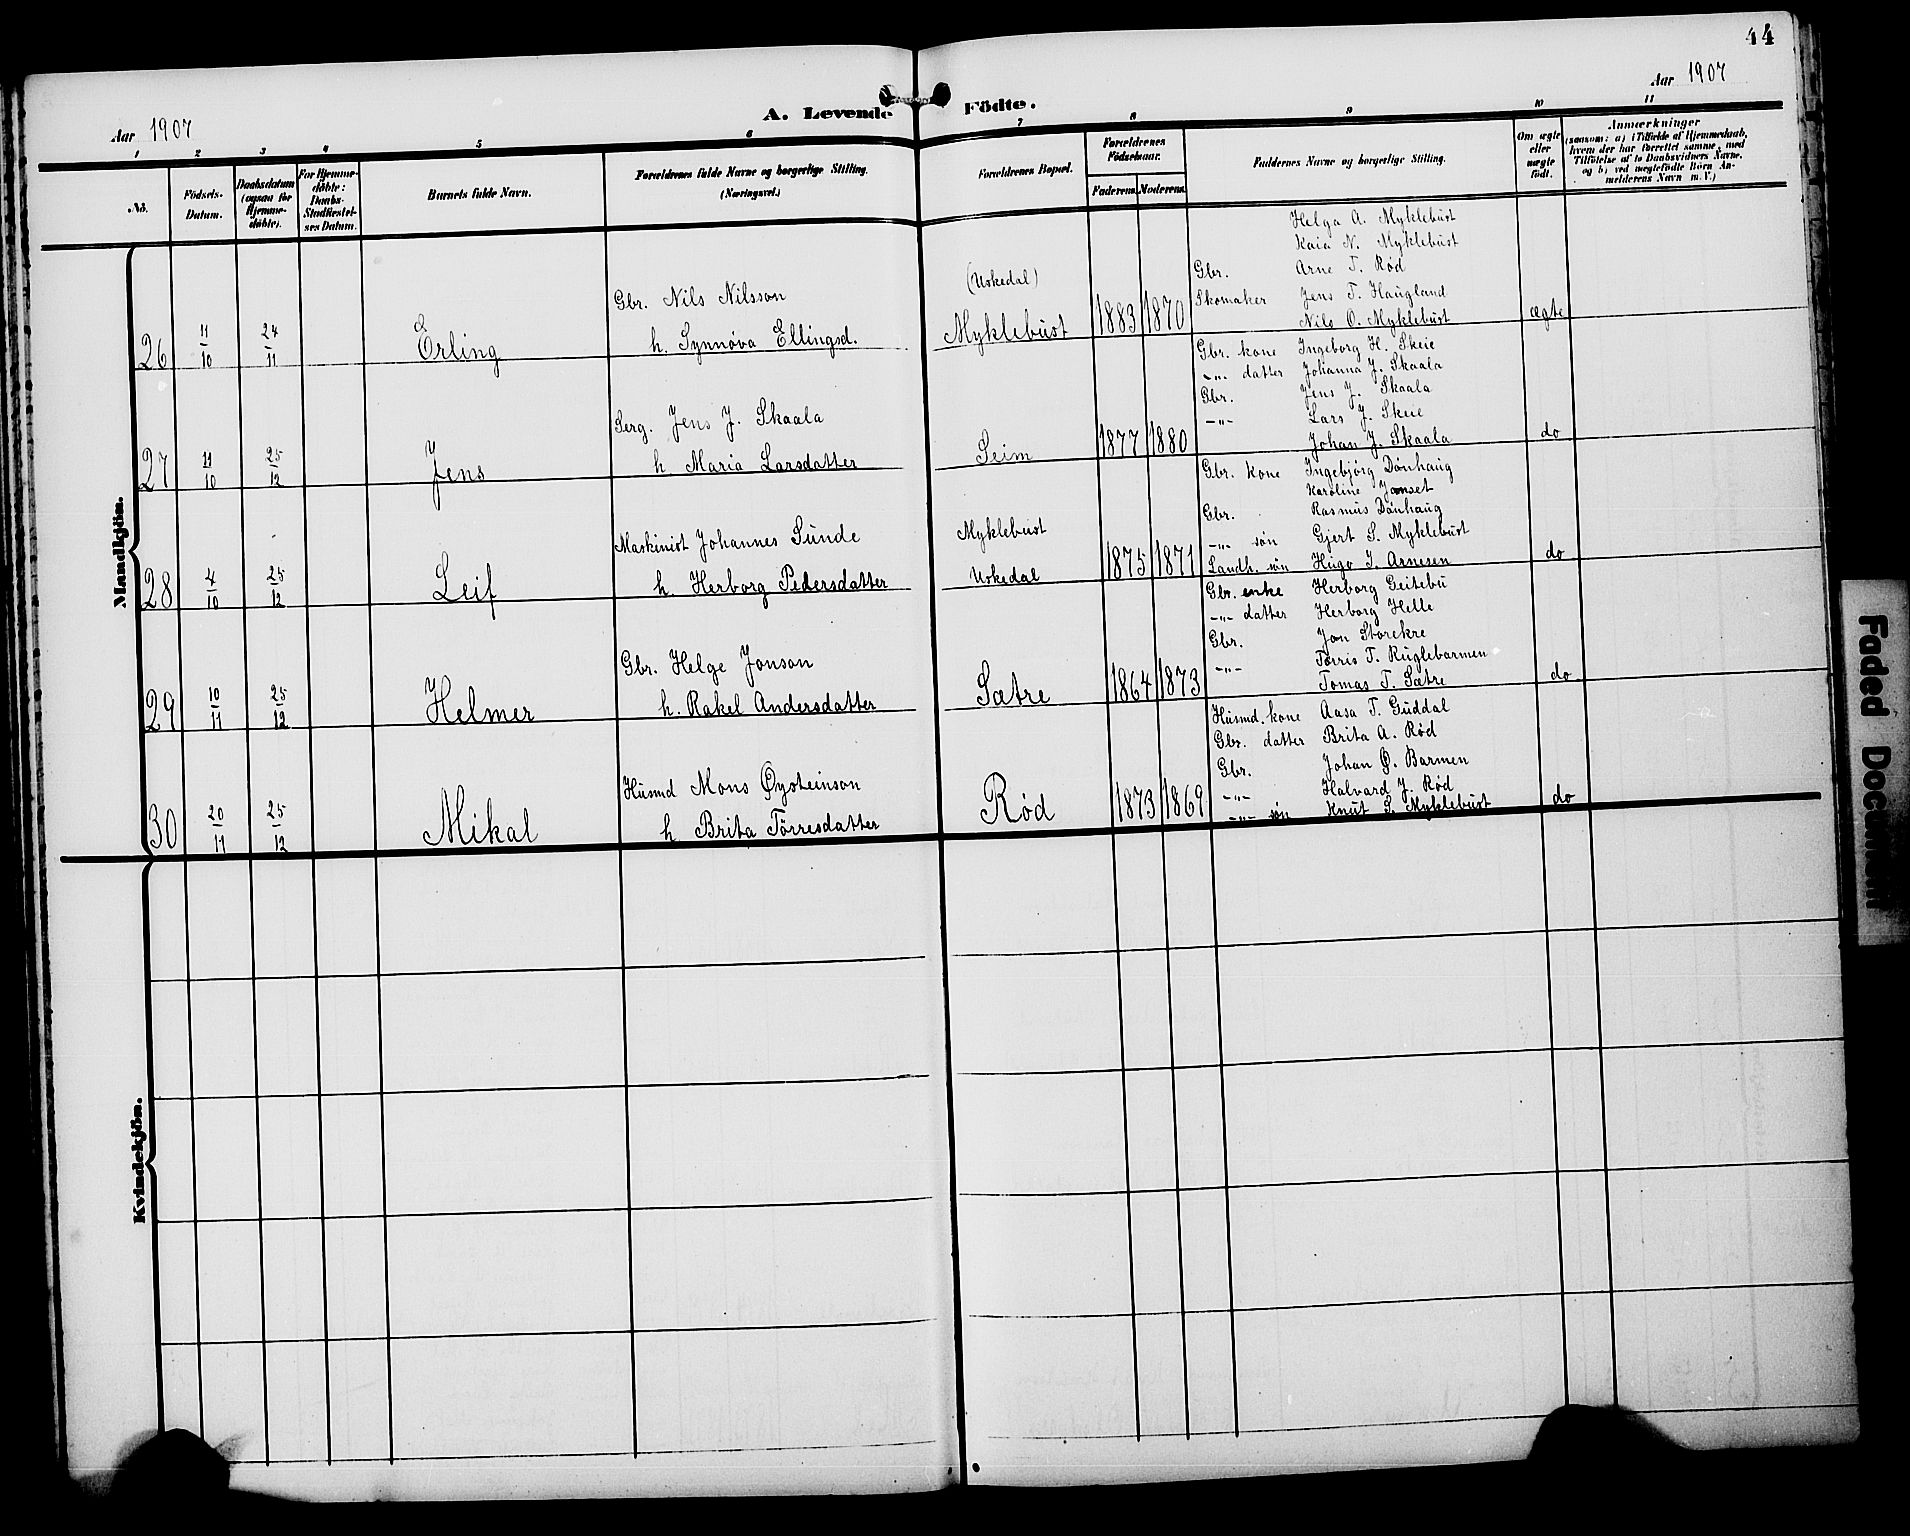 44
Aar 1907
A. Levende Födte.
Aar 1907
1 2 3 4 5 6 7 8 9 10 11
No.
Födsels-Datum.
Daabsdatum (ogsaa for Hjemme-döbte).
For Hjemme-döbte: Daabs-Stadfæstel-ses Datum.
Barnets fulde Navn.
Forældrenes fulde Navne og borgerlige Stilling. (Næringsvei.)
Forældrenes Bopæl.
Forældrenes Födselsaar.
Faderens. Moderens.
Faddernes Navne og borgerlige Stilling.
Om ægte eller uægte födt.
Anmærkninger
(saasom: a) i Tilfælde af Hjemmedaab, hvem der har forrettet samme, med Tilföielse af to Daabsvidners Navne, og b) ved uægtefödte Börn An-melderens Navn m. V.)
Mandkjön.
Helga A. Myklebust
Kaia N. Myklebust
Gbr. Arne T. Rød
Skomaker Jens T. Haugland
Nils O. Myklebust
26 11/10 24/11 Erling
Gbr. Nils Nilsson
h. Synnøva Ellingsd.
(Uskedal)
Myklebust
1883 1870 ægte
Gbr. kone Ingeborg H. Skeie
-"- datter Johanna J. Skaala
Gbr. Jens J. Skaala
-"- Lars J. Skeie
Johan J. Skaala
27 11/10 25/12 Jens
Serg. Jens J. Skaala
h Maria Larsdatter
Seim
1877 1880 do
Gbr. kone Ingebjørg Dønhaug
Karoline Janset
Gbr. Rasmus Dønhaug
-"- søn Gjert S. Myklebust
Landh. søn Hugo I. Arnesen
28 4/10 25/12 Leif
Maskinist Johannes Sunde
h. Herborg Pedersdatter
Myklebust
Uskedal
1875 1871 do
Gbr. enke Herborg Geitebu
-"- datter Herborg Helle
Gbr. Jon Storekre
-"- Torris T. Kuglebarmen
Tomas T. Sætre
29 10/11 25/12 Helmer
Gbr. Helge Jonson
h. Rakel Andersdatter
Sætre
1864 1873 do
Husmd. kone Aasa T. Guddal
Gbr. datter Brita A. Rød
Gbr. Johan Ø. Barmen
-"- Halvard J. Rød
-"- søn Knut S. Myklebust
30 20/11 25/12 Mikal
Husmd Mons Øysteinson
h Brita Tørresdatter
Rød
1873 1869 do
Kvindekjön.
Faded Document